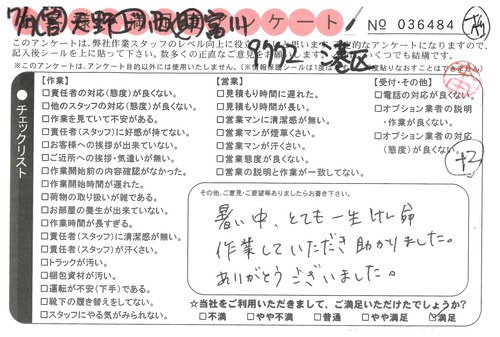 アンケート
No 036484
このアンケートは、弊社作業スタッフのレベル向上に役立
記入後シールを上に貼って下さい。
くつでも結構です。
※このアンケートは、アンケート目的以外には使用いたしません。
チェックリスト
【作業】
□責任者の対応(態度)が良くない。
□他のスタッフの対応(態度)が良くない。
□作業を見ていて不安がある。
□責任者(スタッフ)に好感が持てない。
□お客様への挨拶が出来ていない。
□ご近所への挨拶・気遣いが無い。
□作業開始前の内容確認がなかった。
□作業開始時間が遅れた。
□荷物の取り扱いが雑である。
□お部屋の養生が出来ていない。
□作業時間が長すぎる。
□責任者(スタッフ)に清潔感が無い。
□責任者(スタッフ)が汗くさい。
□トラックが汚い。
□梱包資材が汚い。
□運転が不安(下手)である。
□靴下の履き替えをしてない。
□スタッフにやる気が感じられない。
【営業】
□見積もり時間に遅れた。
□見積もり時間が長い。
□営業マンに清潔感が無い。
□営業マンが煙草くさい。
□営業マンが汗くさい。
□営業態度が良くない。
□営業の説明と作業が一致してない。
【受付・その他】
□電話の対応が良くない。
□オプション業者の説明
・作業が良くない。
□オプション業者の対応
(態度)が良くない。
その他、ご意見・ご要望等ありましたらお書き下さい。
暑い中、とても一生けん命
作業していただき助かりました。
ありがとうございました。
☆当社をご利用いただきまして、ご満足いただけたでしょうか?
□不満 □やや不満 □普通 □やや満足 ☑満足